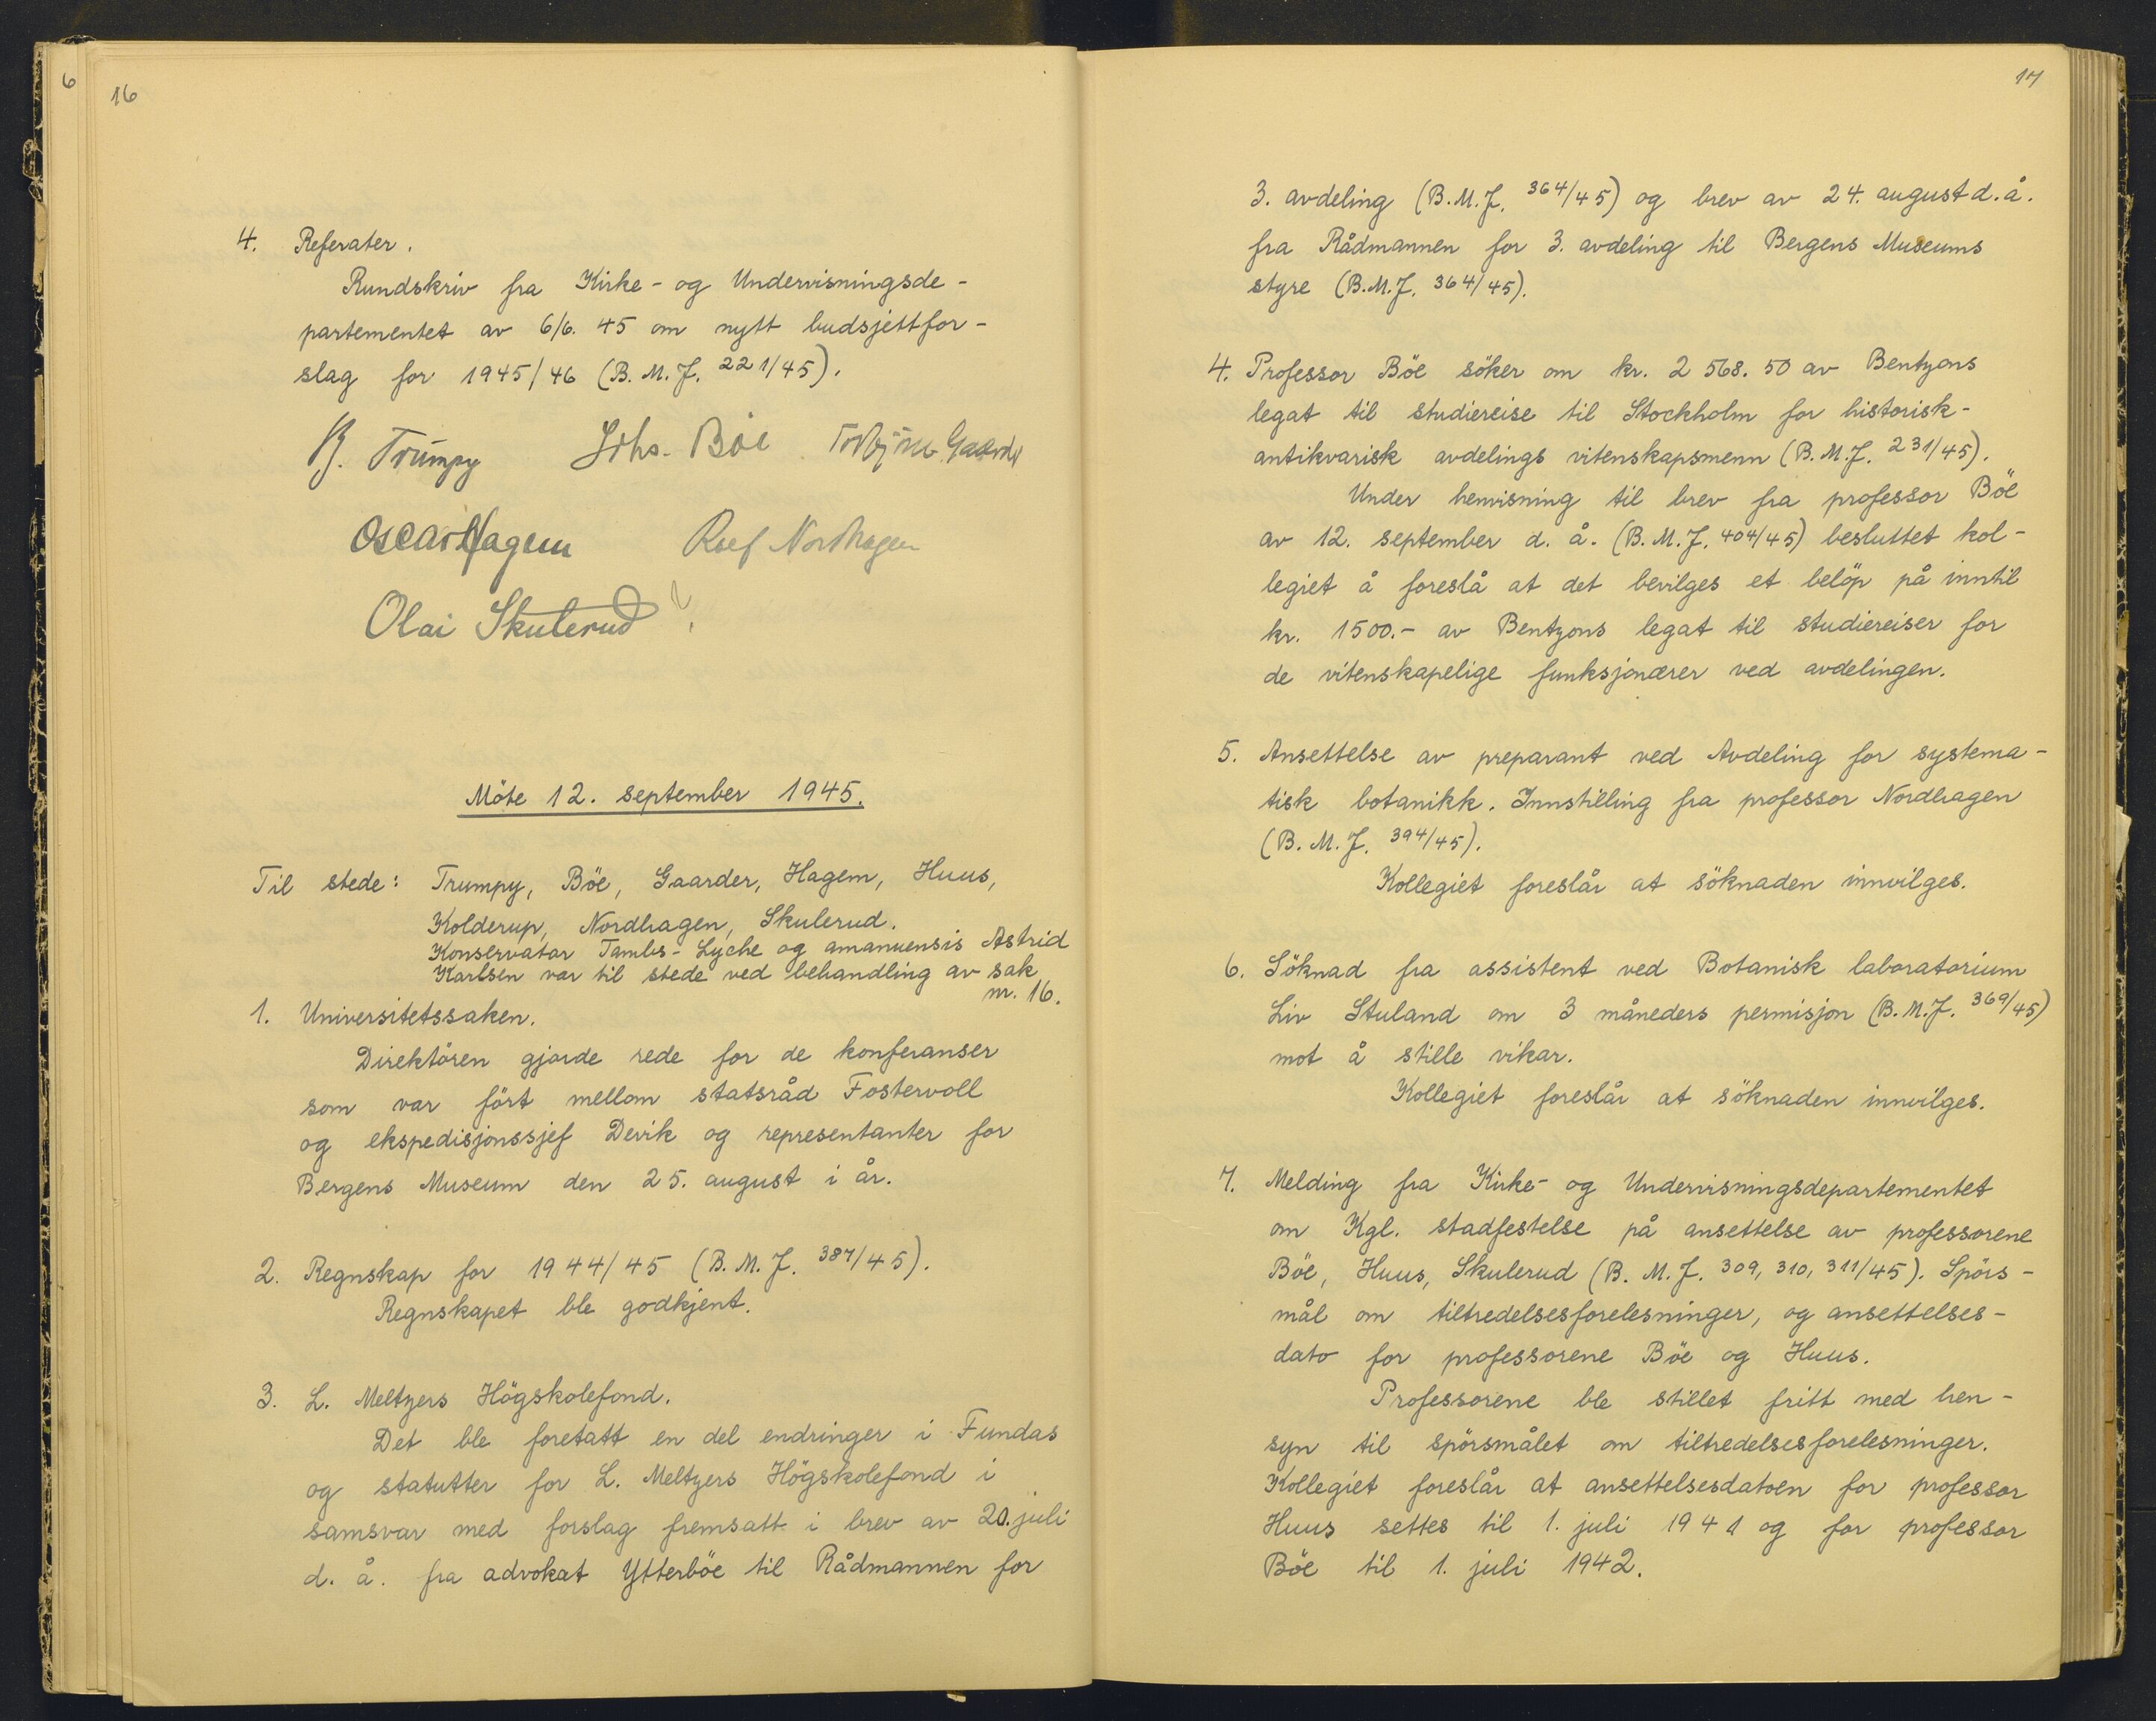 6
16
4. Referater.
Rundskriv fra Kirke- og Undervisningsde-
partementet av 6/6. 45 om nytt budsjettfor-
slag for 1945/46 (B. M. J. 221/45).
B. Trumpy Johs. Böe Torbjörn Gaarder
Oscar Hagem Rolf Nordhagen
Olai Skulerud
Möte 12. september 1945.
Til stede: Trumpy, Böe, Gaarder, Hagem, Huus,
Kolderup, Nordhagen, Skulerud.
Konservator Tambs-Lyche og amanuensis Astrid
Karlsen var til stede ved behandling av sak
nr. 16.
1. Universitetssaken.
Direktören gjorde rede for de konferanser
som var fört mellom statsråd Fostervoll
og ekspedisjonssjef Devik og representanter for
Bergens Museum den 25. august i år.
2. Regnskap for 1944/45 (B. M. J. 387/45).
Regnskapet ble godkjent.
3. L. Meltzers Högskolefond.
Det ble foretatt en del endringer i Fundas
og statutter for L. Meltzers Högskolefond i
samsvar med forslag fremsatt i brev av 20. juli
d. å. fra advokat Ytterböe til Rådmannen for
17
3. avdeling (B.M.J. 364/45) og brev av 24. august d. å.
fra Rådmannen for 3. avdeling til Bergens Museums
styre (B.M.J. 364/45).
4. Professor Böe söker om kr. 2 568.50 av Bentzons
legat til studiereise til Stockholm for historisk-
antikvarisk avdelings vitenskapsmenn (B. M. J. 231/45).
Under henvisning til brev fra professor Böe
av 12. september d. å. (B. M. J. 404/45) besluttet kol-
legiet å foreslå at det bevilges et belöp på inntil
kr. 1500.- av Bentzons legat til studiereiser for
de vitenskapelige funksjonærer ved avdelingen.
5. Ansettelse av preparant ved Avdeling for systema-
tisk botanikk. Innstilling fra professor Nordhagen
(B. M. J. 394/45).
Kollegiet foreslår at söknaden innvilges.
6. Söknad fra assistent ved Botanisk laboratorium
Liv Stuland om 3 måneders permisjon (B. M. J. 369/45)
mot å stille vikar.
Kollegiet foreslår at söknaden innvilges.
7. Melding fra Kirke- og Undervisningsdepartementet
om Kgl. stadfestelse på ansettelse av professorene
Böe, Huus, Skulerud (B. M. J. 309, 310, 311/45). Spörs-
mål om tiltredelsesforelesninger, og ansettelses-
dato for professorene Böe og Huus.
Professorene ble stillet fritt med hen-
syn til spörsmålet om tiltredelsesforelesninger.
Kollegiet foreslår at ansettelsesdatoen for professor
Huus settes til 1. juli 1941 og for professor
Böe til 1. juli 1942.